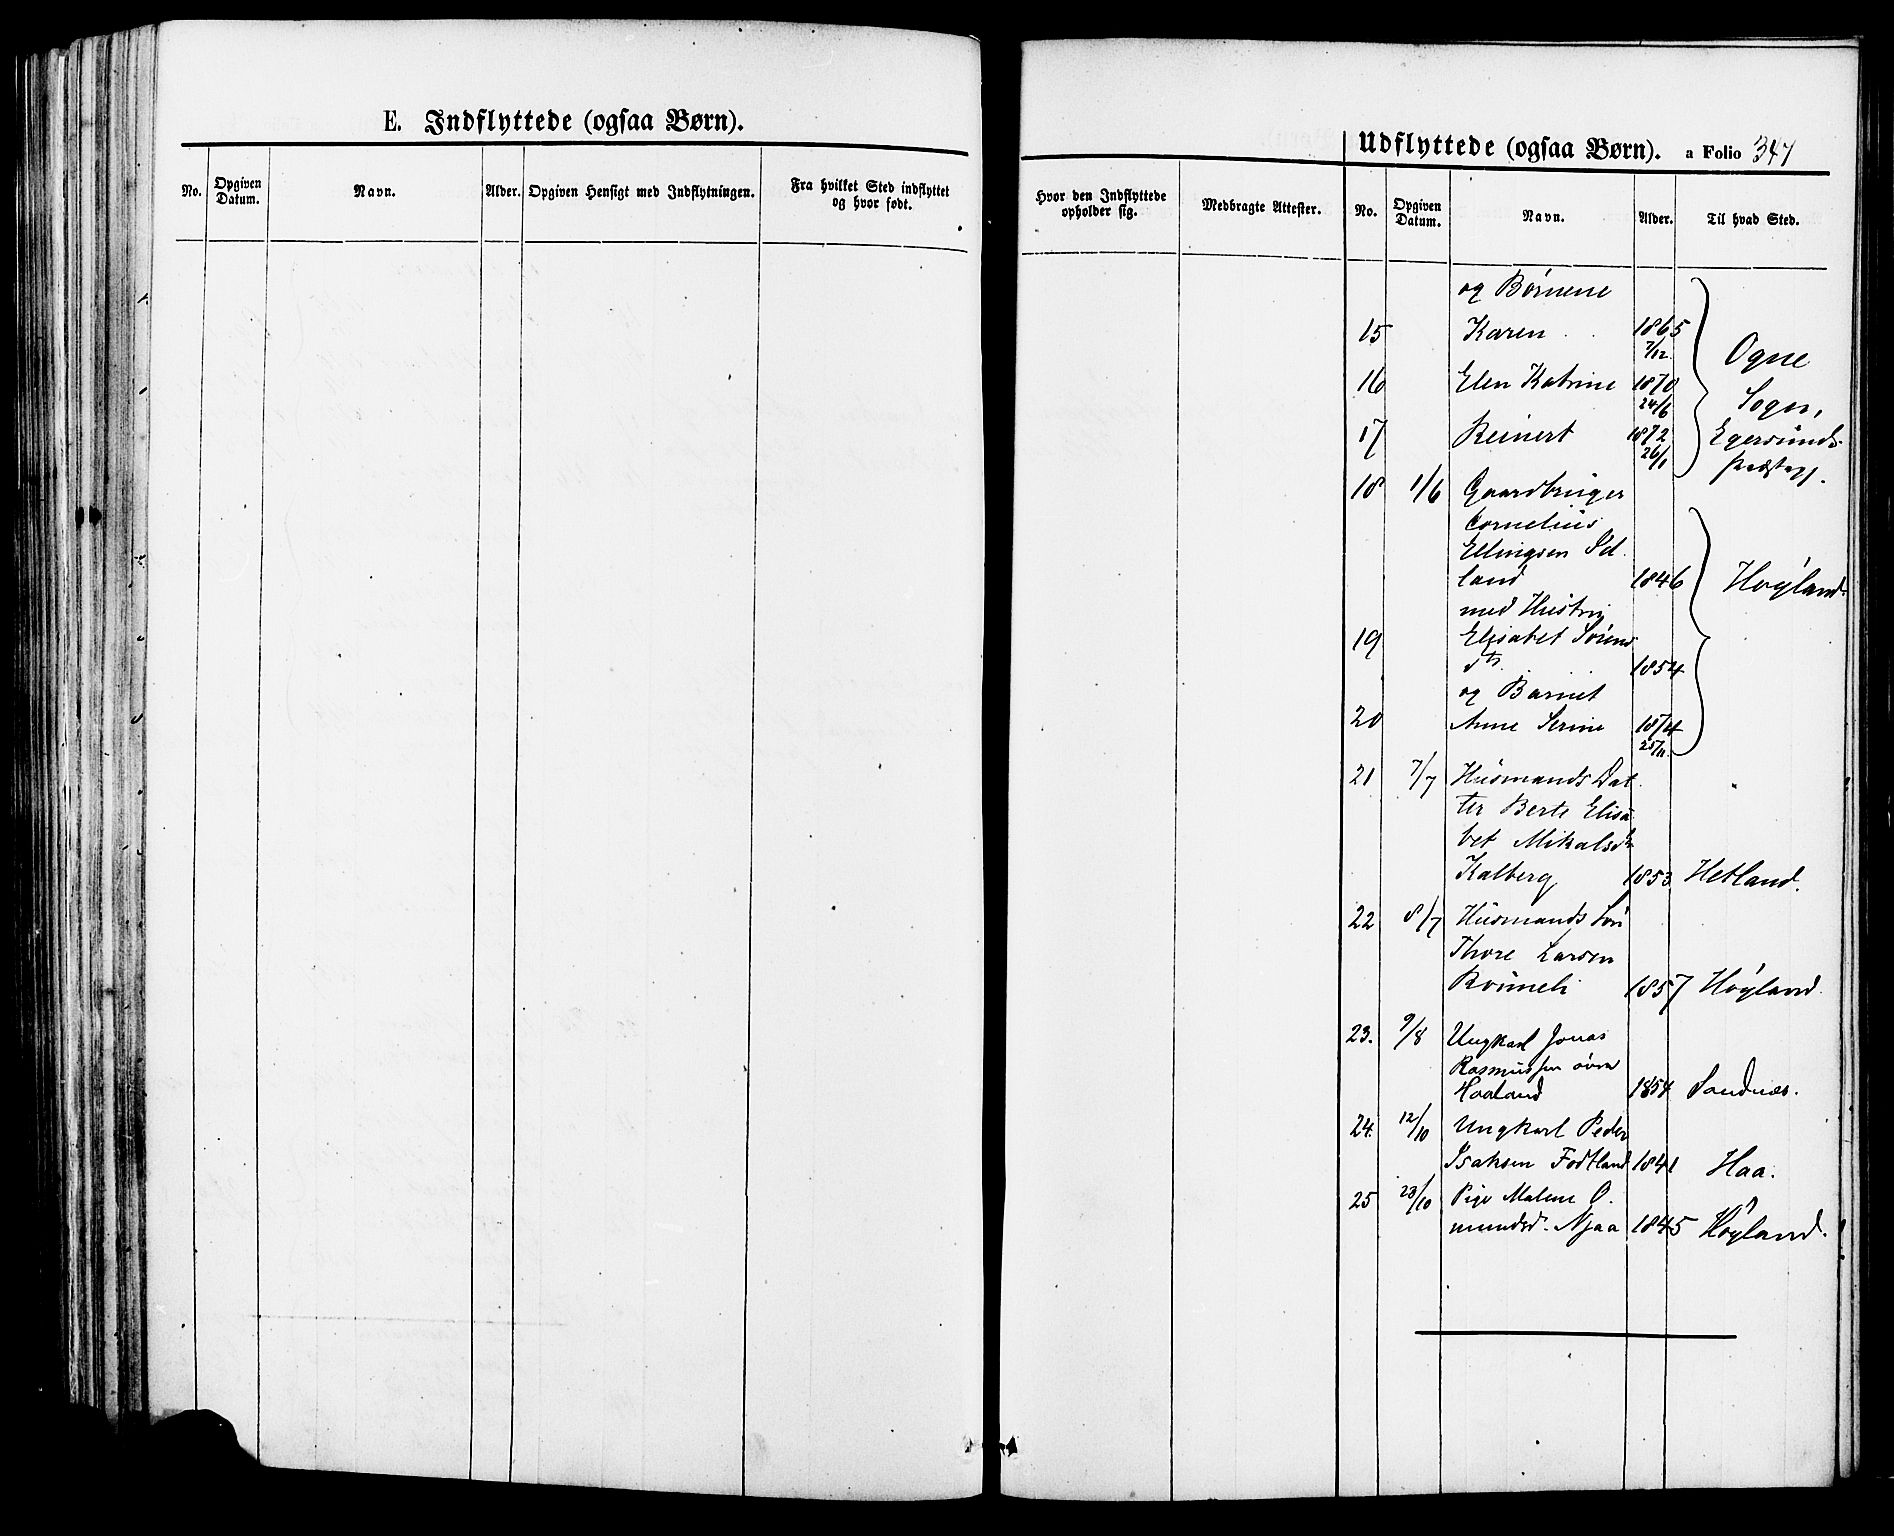 E. Indflyttede (ogsaa Børn).
No.
Opgiven Datum.
Navn.
Alder.
Opgiven Hensigt med Indflytningen.
Fra hvilket Sted indflyttet
og hvor født.
Hvor den Indflyttede
opholder sig.
Medbragte Attester.
Udflyttede (ogsaa Børn). a Folio 347
No.
Opgiven Datum.
Navn.
Alder.
Til hvad Sted.
og Børnene
15 Karen 1865
7/12
Ogne
16 Elen Katrine 1870
24/6
Sogn,
17 Reinert 1872 Egersunds
26/1
præstegj.
18 1/6 Gaardbruger
Cornelius
Ellingsen
land 1846 Høyland
med Hustru
19 Elisabet Sørens
dtr. 1854
og Barnet
20 Anne Serine 1874
25/11
21 7/7 Husmands Dat
ter Berte Elisa
bet Mikalsdtr
Kalberg 1853 Hetland.
22 8/7 Husmands Søn
Thore Larsen
1857 Høyland.
23. 9/8 Ungkarl Jonas
Rasmussen øvre
Haaland 1854 Sandnæs.
24. 12/10 Ungkarl Peder
Isaksen Fodtland 1841 Haa.
25 23/10 Pige Malene O.
mundsd. Njaa 1845 Høyland.